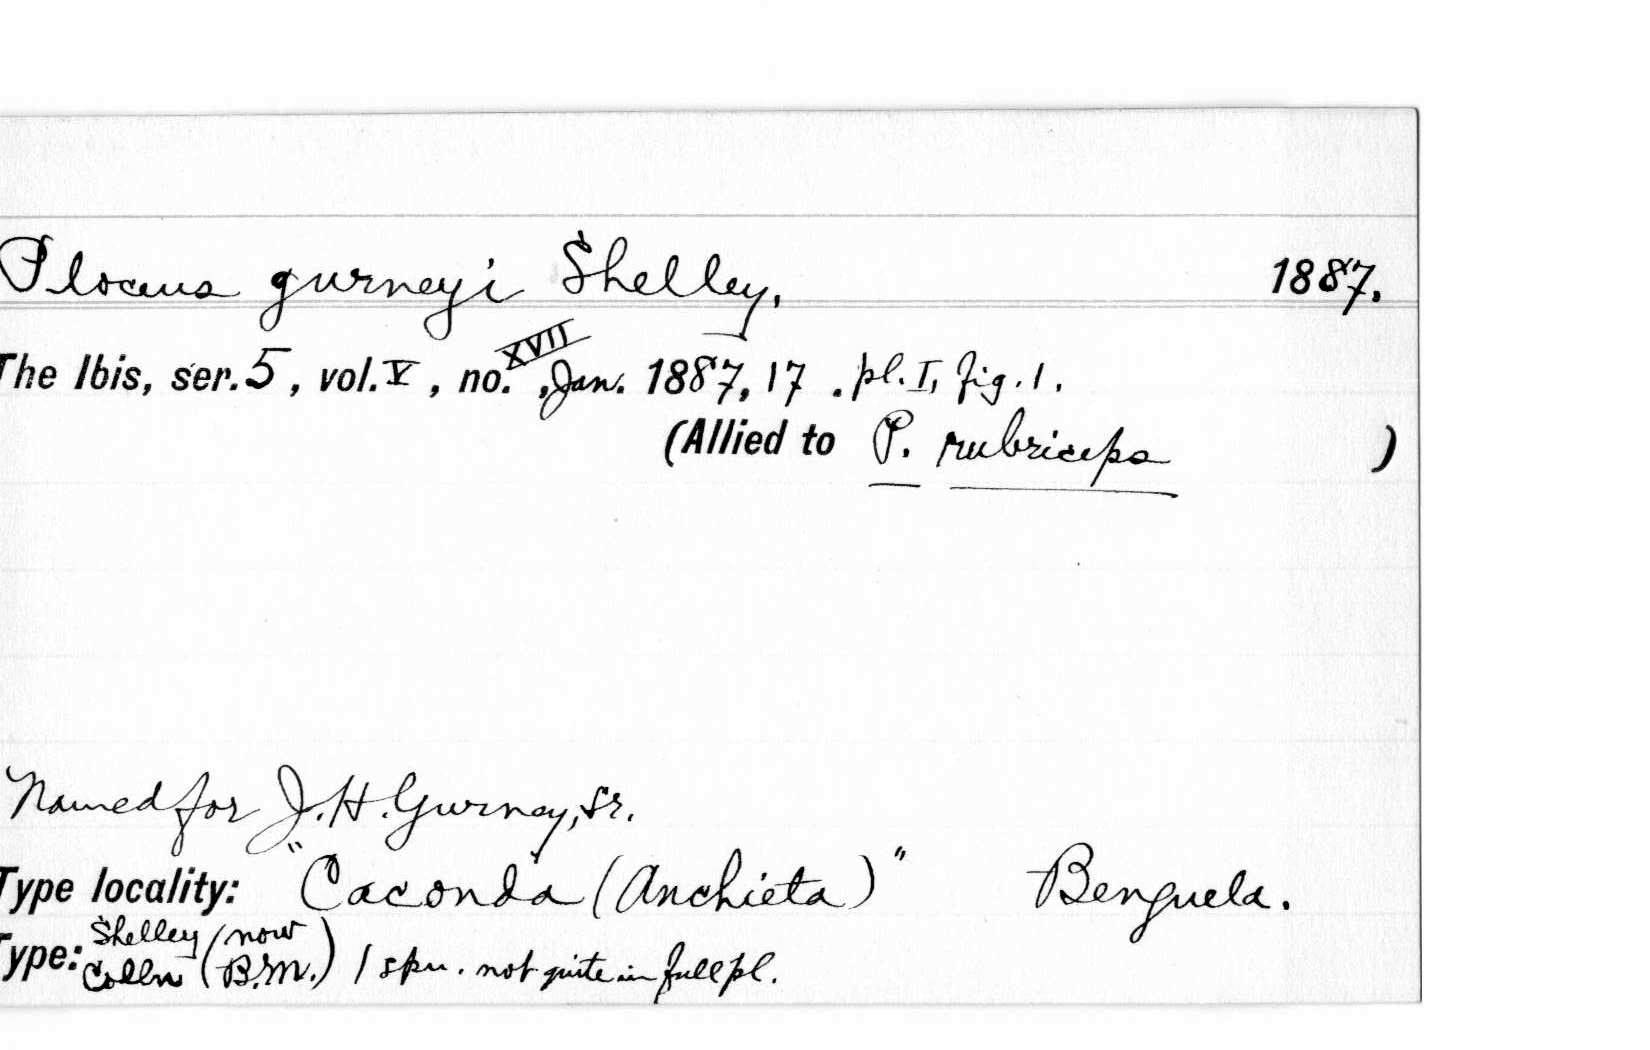 Ploceus gurneyi Shelley, 1887.
The Ibis, ser. 5, vol. V, no. XVII, Jan. 1887, 17. pl. I, fig. 1.
(Allied to P. rubriceps )
Named for J. H. Gurney, sr.
Type locality: "Caconda (Anchieta)" Benguela.
Type: Shelley Colln (now B.M.) 1 spn. not quite in full pl.